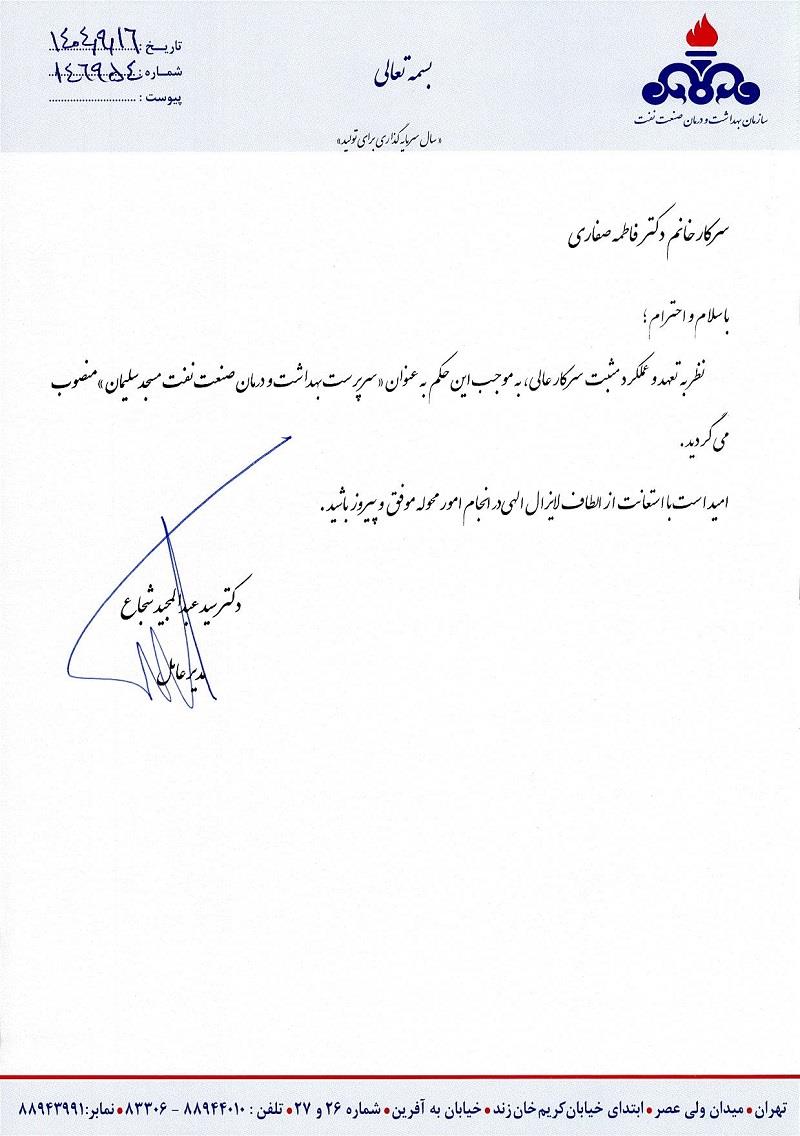 تاریخ: ۱۴۰۴،۹،۱۶
شماره: ۱۴۶۹۵۴
پیوست:
بسمه تعالی
سازمان بهداشت و درمان صنعت نفت
«سال سرمایه گذاری برای تولید»
سرکار خانم دکتر فاطمه صفاری
باسلام و احترام؛
نظر به تعهد و عملکرد مثبت سرکار عالی، به موجب این حکم به عنوان «سرپرست بهداشت و درمان صنعت نفت مسجد سلیمان» منصوب
می گردید.
امید است با استعانت از الطاف لایزال الهی در انجام امور محوله موفق و پیروز باشید.
دکتر سید عبدالمجید شجاع
مدیر عامل
تهران • میدان ولی عصر • ابتدای خیابان کریم خان زند • خیابان به آفرین • شماره ۲۶ و ۲۷ • تلفن: ۸۸۹۴۴۰۱۰ - ۸۳۳۰۶ • نمابر: ۸۸۹۴۳۹۹۱